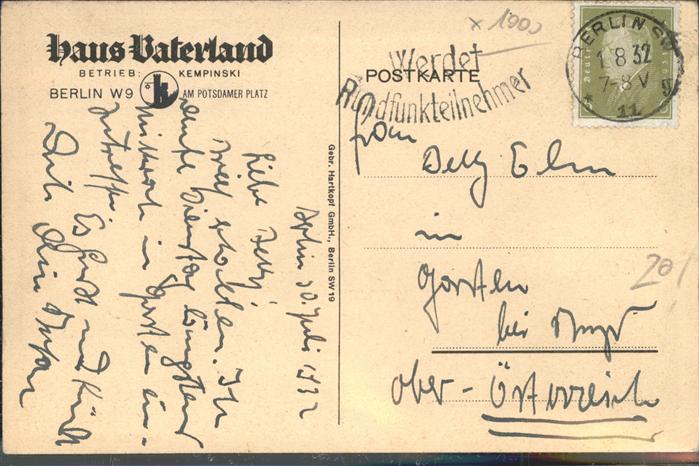 Haus Vaterland
BETRIEB: KEMPINSKI
BERLIN W9 AM POTSDAMER PLATZ
Berlin 30. Juli 1932
Liebe Detty!
Brief erhalten. Ich
werde Dienstag längstens
Mittwoch in Garsten ein-
treffen.
Es grüßt und küßt
Dich Dein
Gebr. Hartkopf GmbH., Berlin SW 19
x 1900
Werdet
Rundfunkteilnehmer
POSTKARTE
BERLIN SW
1.8.32 7-8 V
* 11
Frau
Detty Elm
in
Garsten
bei
Ober-Österreich
20/